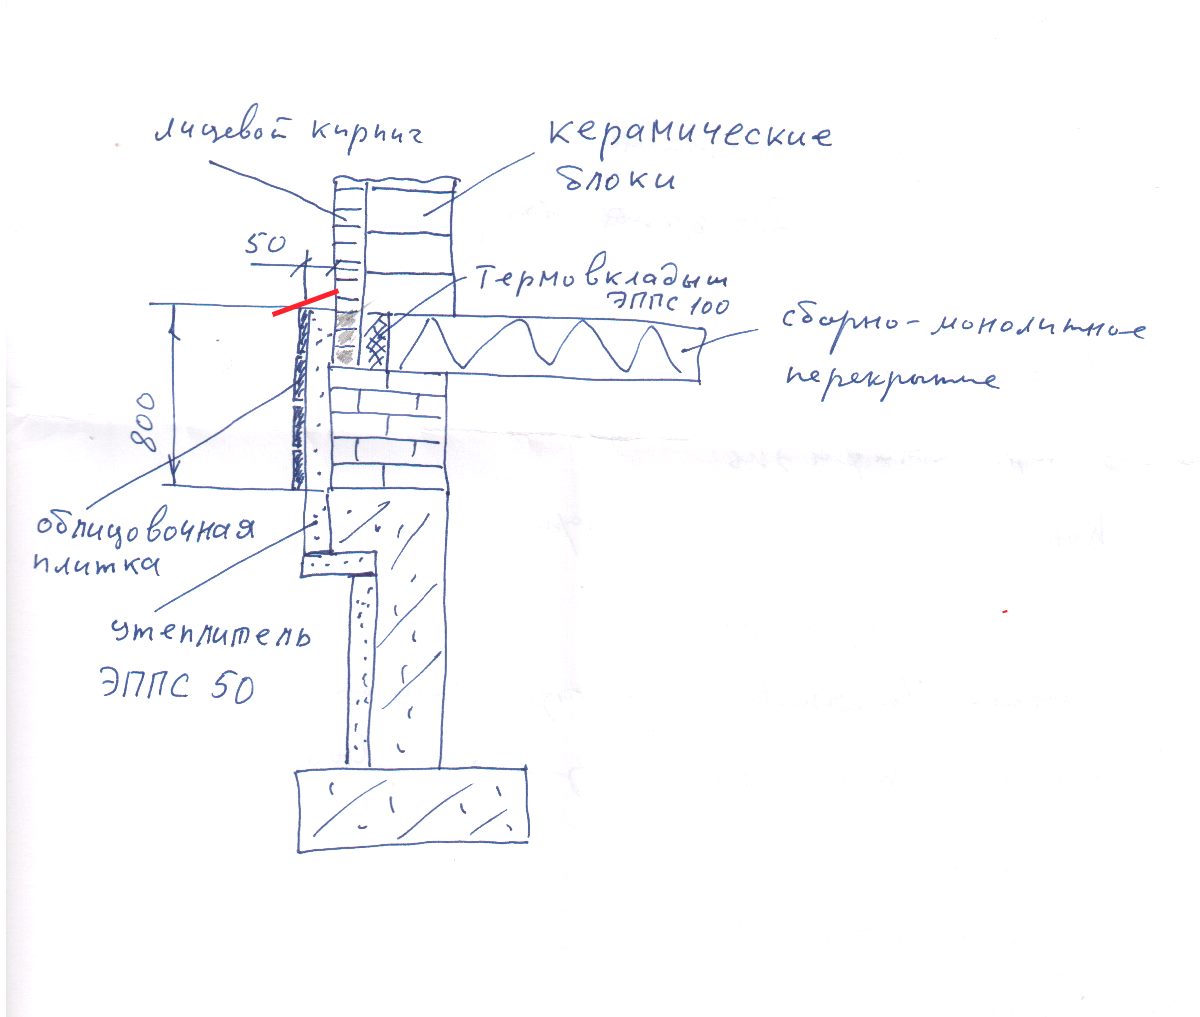 лицевой кирпич
керамические
блоки
50
Термовкладыш
ЭППС 100
сборно-монолитное
перекрытие
800
облицовочная
плитка
утеплитель
ЭППС 50